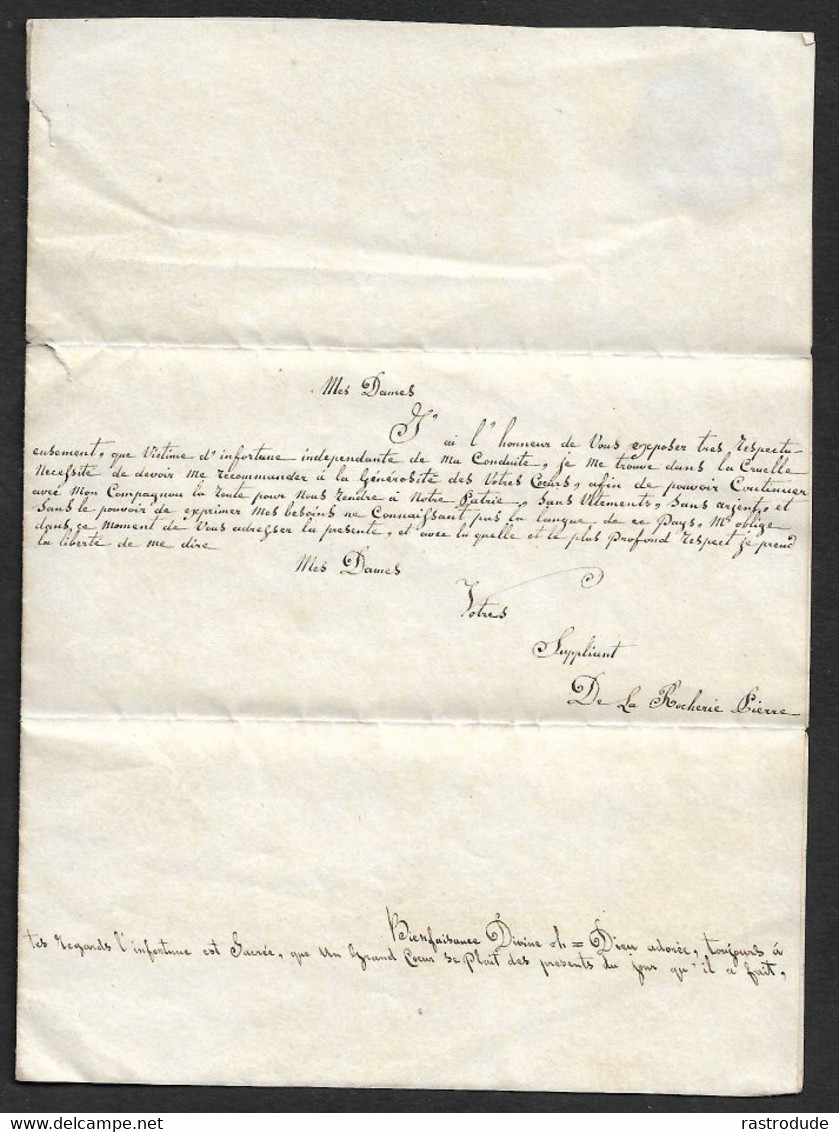 Mes Dames
J' ai l' honneur de Vous exposer tres respectu-
eusement, que Victime d' infortune independante de ma Conduite, je me trouve dans la Cruelle
Necessité de devoir me recommander à la Générosité des Votres Cœurs, afin de pouvoir Continuer
avec Mon Compagnon la route pour Nous rendre à Notre Patrie, Sans Vêtements, Sans argent, et
Sans le pouvoir de exprimer Mes besoins ne Connaissant pas la langue de ce Pays, M' oblige
dans, ce moment de Vous adresser la presente, et avec la quelle et le plus profond respect je prend
la liberté de me dire
Mes Dames
Votres
Suppliant
De La Rocherie Pierre
Bienfaisance Divine oh = Dieu adorée, toujours à
tes regards l' infortune est Sacrée, que un Grand Cœur se plait des presents du jour qu' il a fait,
delcampe.net
rastrodude